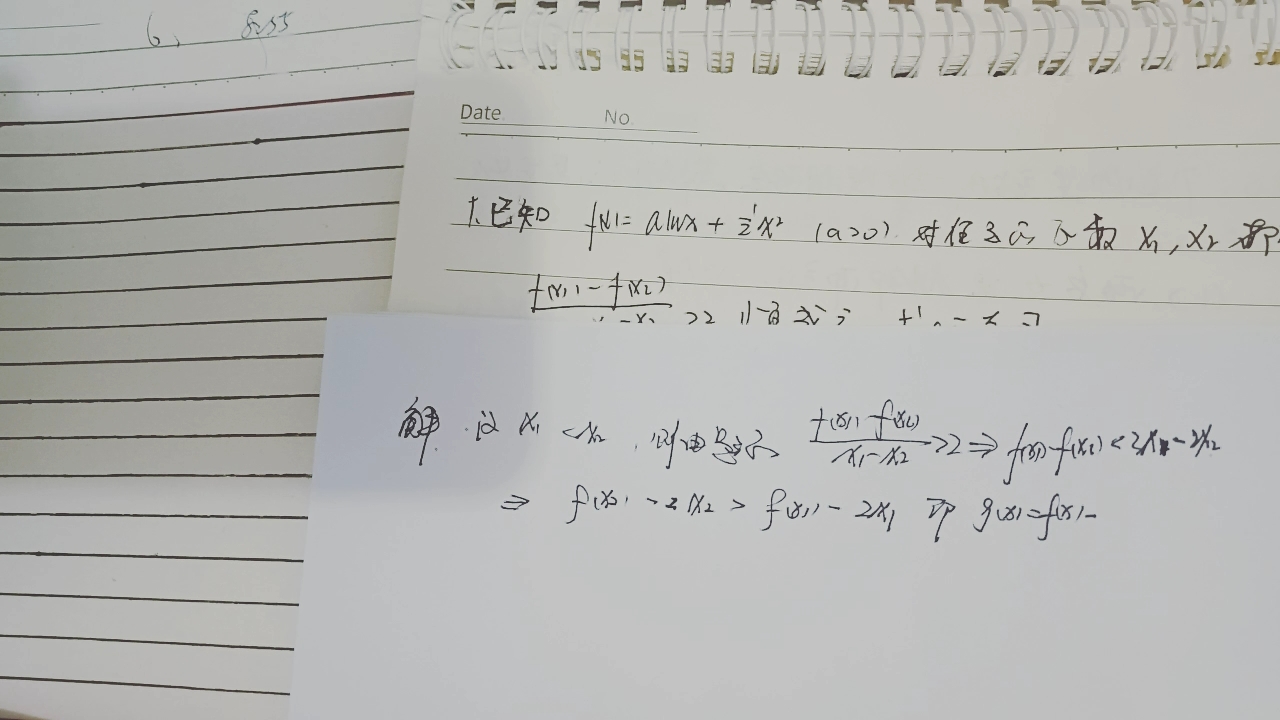 6,
Date No.
1.已知 f(x)=alnx+½x² (a>0) 对任意两个不 x₁,x₂ 都
f(x₁)-f(x₂)
>2 恒成立,
解 设 x₁<x₂,则由题意 f(x₁)-f(x₂)/x₁-x₂ >2⇒f(x₁)-f(x₂)<2x₁-2x₂
⇒ f(x₂)-2x₂>f(x₁)-2x₁ 即 g(x)=f(x)-